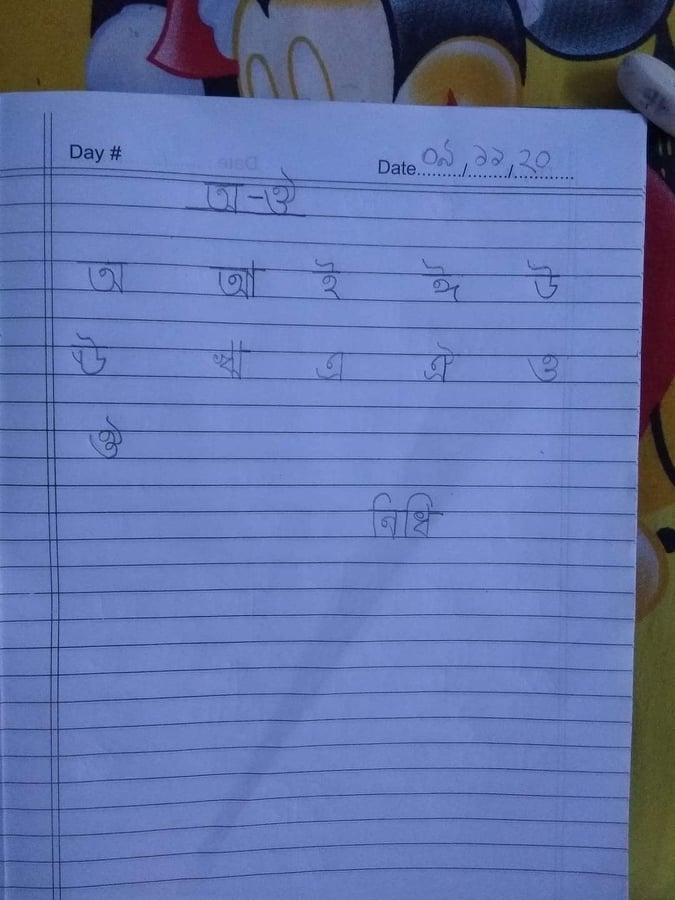 Day #
Date ০৯/১১/২০
অ-ঔ
অ আ ই ঈ উ
ঊ ঋ এ ঐ ও
ঔ
নিধি